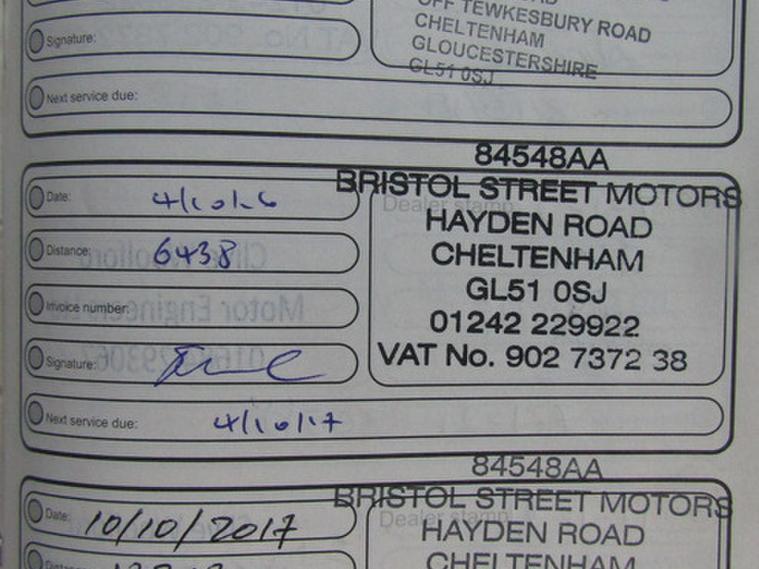 OFF TEWKESBURY ROAD
CHELTENHAM
GLOUCESTERSHIRE
GL51 0SJ
Signature:
Next service due:
84548AA
BRISTOL STREET MOTORS
Dealer stamp
HAYDEN ROAD
CHELTENHAM
GL51 0SJ
01242 229922
VAT No. 902 7372 38
Date: 4/10/16
Distance: 6438
Invoice number:
Signature:
Next service due: 4/10/17
84548AA
BRISTOL STREET MOTORS
Dealer stamp
HAYDEN ROAD
CHELTENHAM
Date: 10/10/2017
Distance: